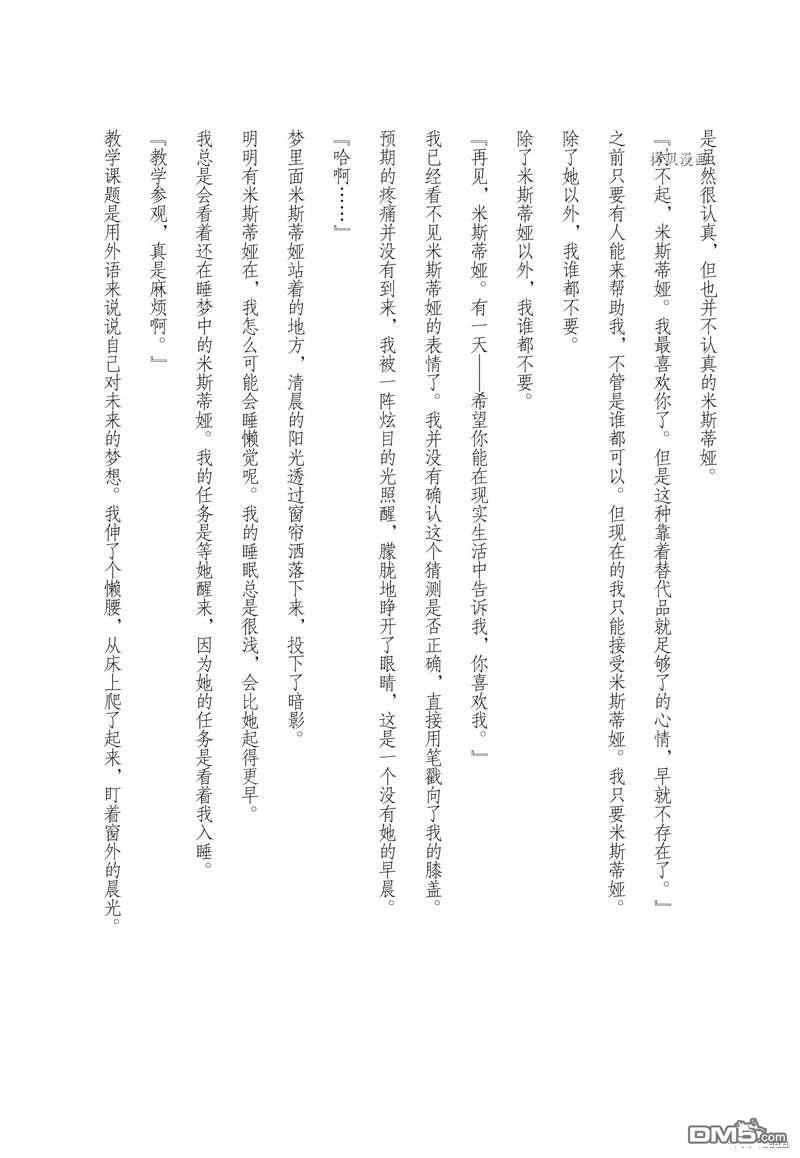 是虽然很认真，但也并不认真的米斯蒂娅。
『对不起，米斯蒂娅。我最喜欢你了。但是这种靠着替代品就足够了的心情，早就不存在了。』
之前只要有人能来帮助我，不管是谁都可以。但现在的我只能接受米斯蒂娅。我只要米斯蒂娅。
除了她以外，我谁都不要。
除了米斯蒂娅以外，我谁都不要。
『再见，米斯蒂娅。有一天——希望你能在现实生活中告诉我，你喜欢我。』
我已经看不见米斯蒂娅的表情了。我并没有确认这个猜测是否正确，直接用笔戳向了我的膝盖。
预期的疼痛并没有到来，我被一阵炫目的光照醒，朦胧地睁开了眼睛，这是一个没有她的早晨。
『哈啊……』
梦里面米斯蒂娅站着的地方，清晨的阳光透过窗帘洒落下来，投下了暗影。
明明有米斯蒂娅在，我怎么可能会睡懒觉呢。我的睡眠总是很浅，会比她起得更早。
我总是会看着还在睡梦中的米斯蒂娅。我的任务是等她醒来，因为她的任务是看着我入睡。
『教学参观，真是麻烦啊。』
教学课题是用外语来说说自己对未来的梦想。我伸了个懒腰，从床上爬了起来，盯着窗外的晨光。
拷贝漫画
DM5.com